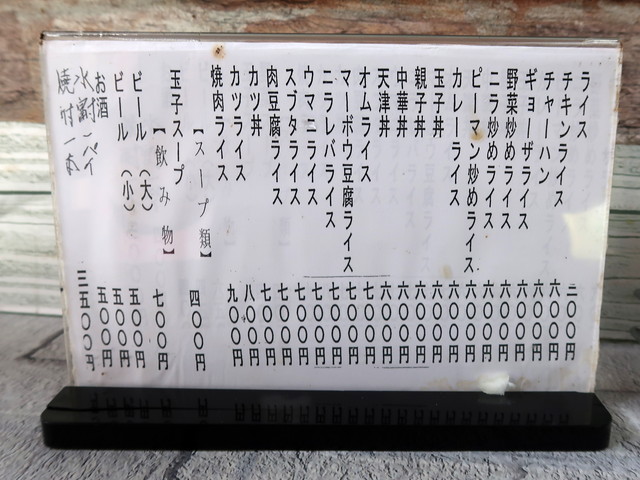 ライス 二〇〇円
チキンライス 六〇〇円
チャーハン 六〇〇円
ギョーザライス 六〇〇円
野菜炒めライス 六〇〇円
ニラ炒めライス 六〇〇円
ピーマン炒めライス 六〇〇円
カレーライス 六〇〇円
玉子丼 六〇〇円
親子丼 六〇〇円
中華丼 六〇〇円
天津丼 六〇〇円
オムライス 七〇〇円
マーボウ豆腐ライス 七〇〇円
ニラレバライス 七〇〇円
ウマニライス 七〇〇円
スブタライス 七〇〇円
肉豆腐ライス 七〇〇円
カツ丼 七〇〇円
カツライス 八〇〇円
焼肉ライス 九〇〇円
【スープ類】
玉子スープ 四〇〇円
【飲み物】
ビール（大） 七〇〇円
ビール（小） 五〇〇円
お酒 五〇〇円
水割一パイ 五〇〇円
焼酎一本 三五〇〇円